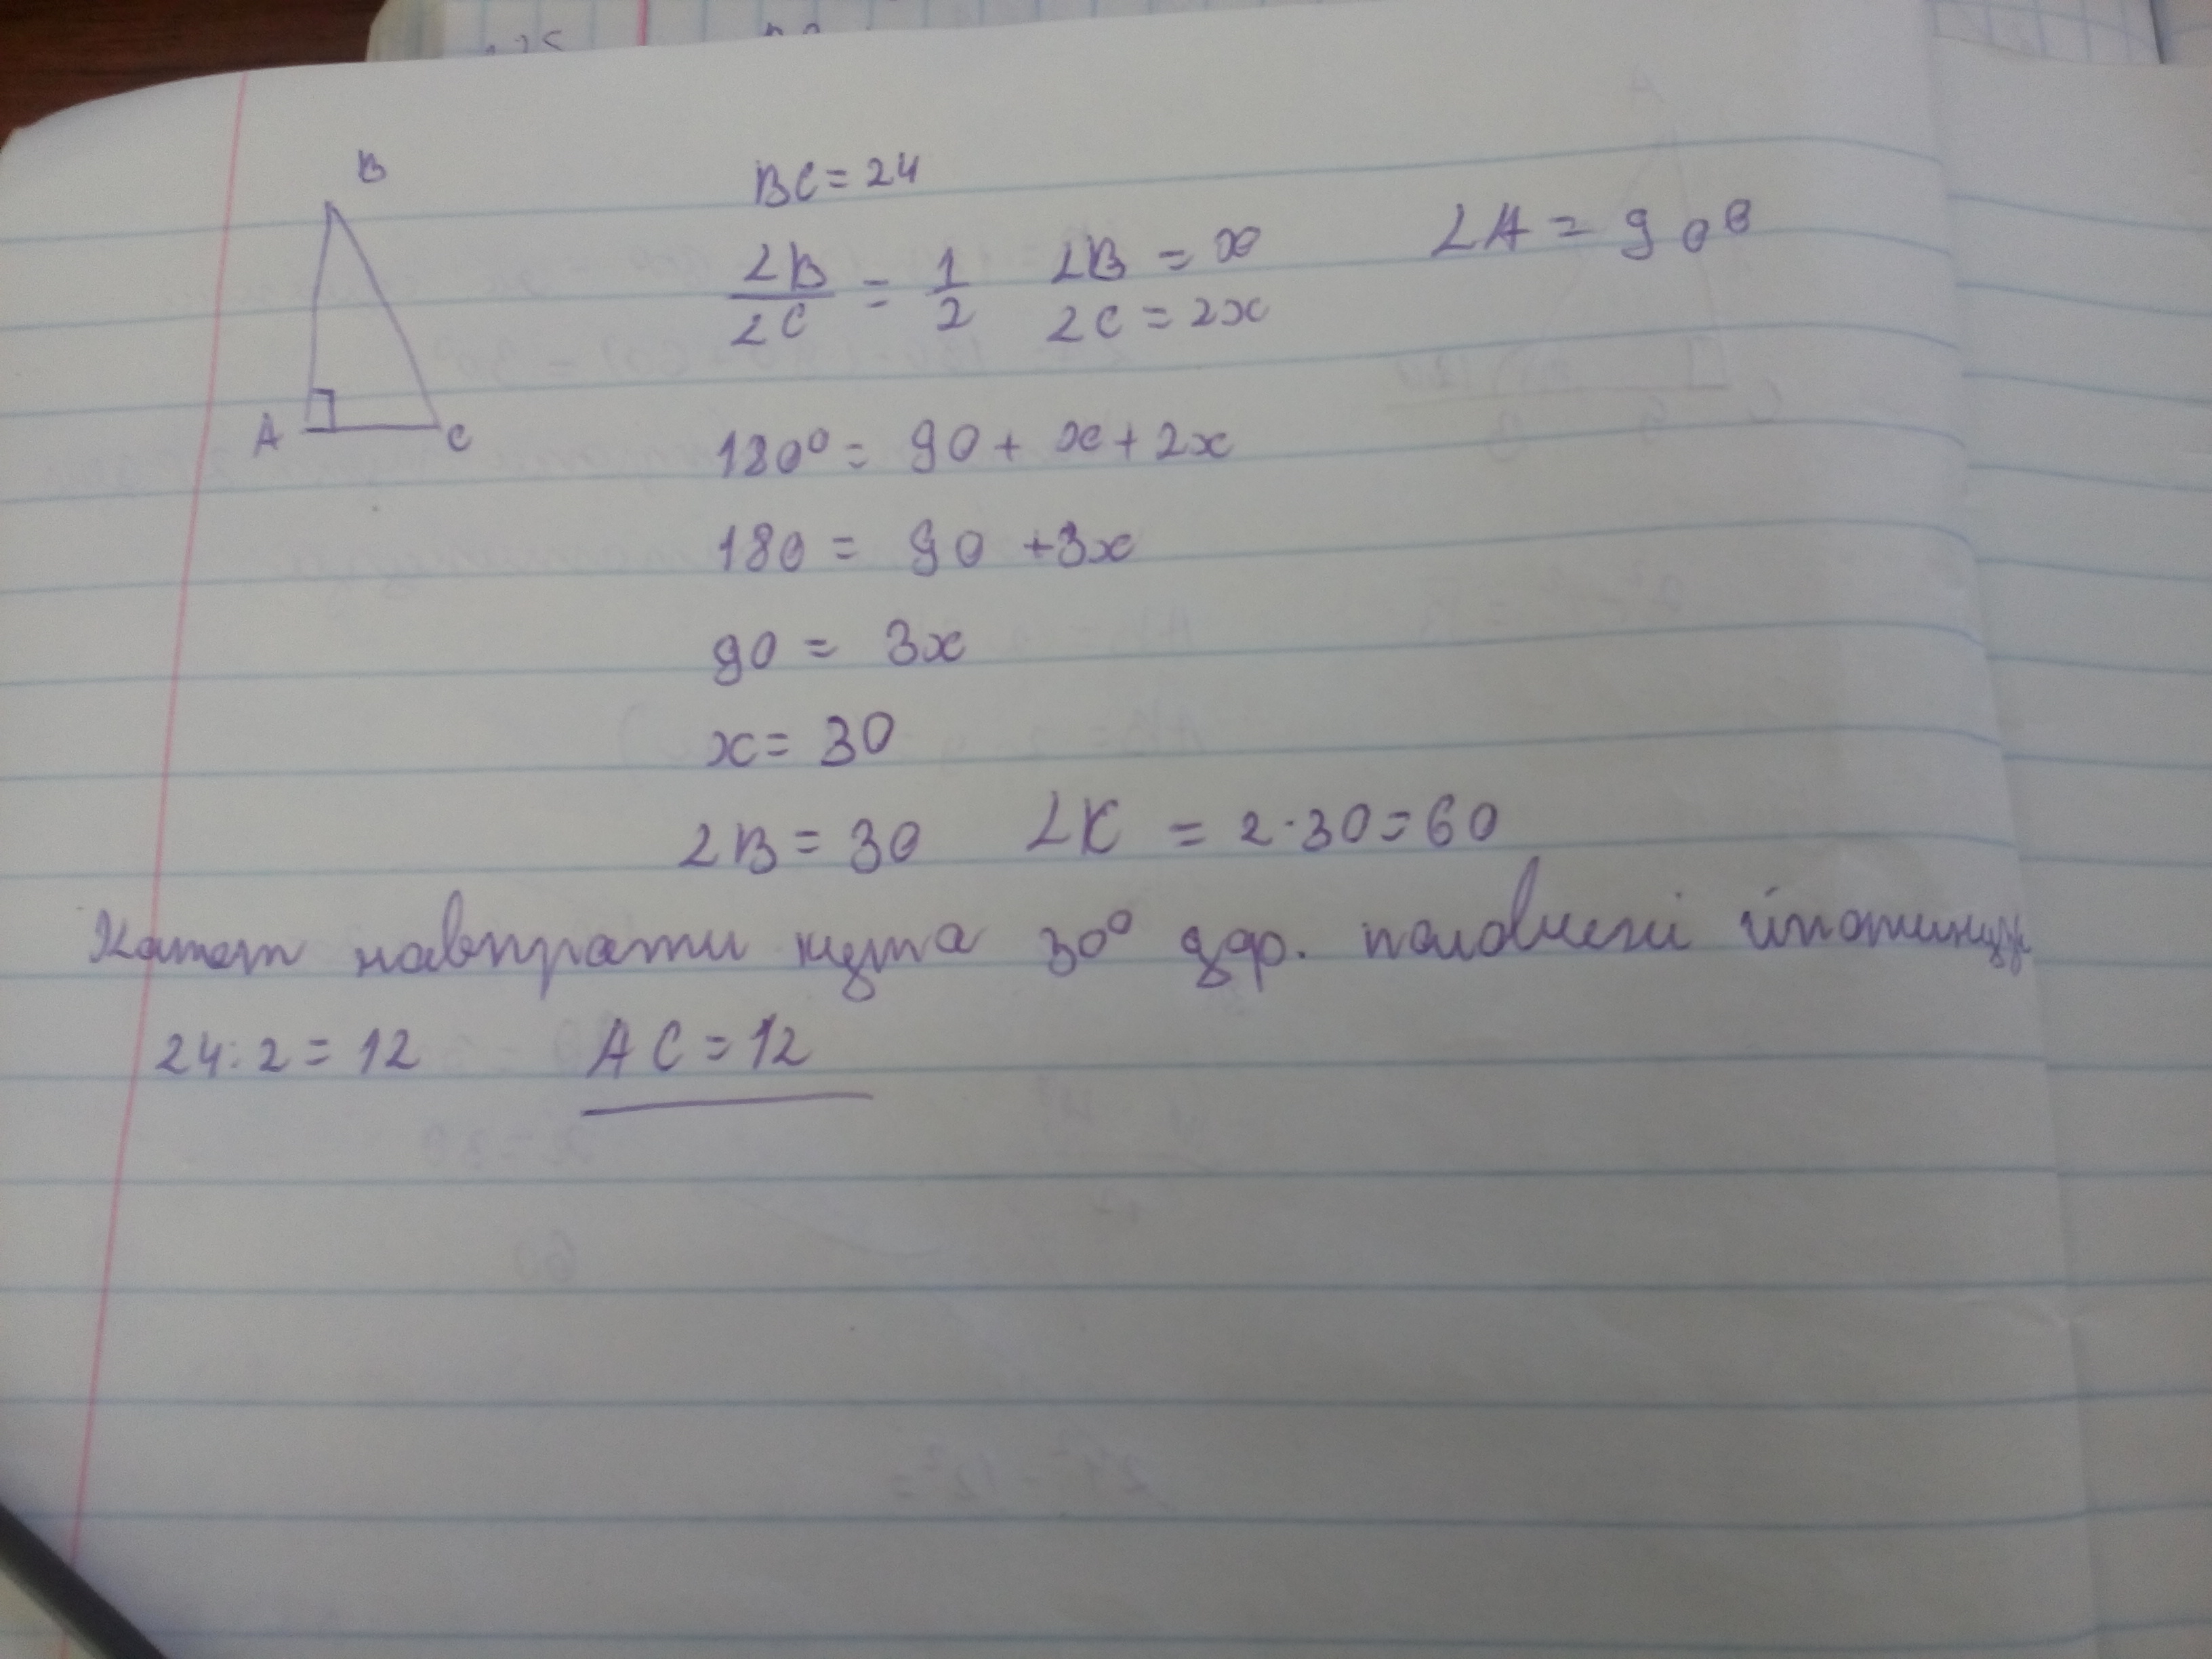 B
A
C
BC = 24
∠B/∠C = 1/2 ∠B = x ∠A = 90°
∠C = 2x
180° = 90 + x + 2x
180 = 90 + 3x
90 = 3x
x = 30
∠B = 30 ∠C = 2·30 = 60
Катет навпроти кута 30° др. половині іпотинузи
24:2 = 12 AC = 12